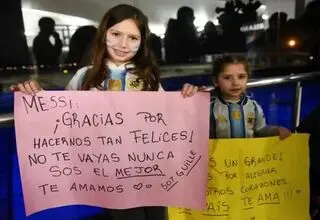 MESSI:
¡GRACIAS POR
HACERNOS TAN FELICES!
NO TE VAYAS NUNCA
SOS EL MEJOR
TE AMAMOS
SOY GUILLE
S UN GRANDE!
S POR ALEGRAR
ESTROS CORAZONES.
PAÍS TE AMA!!!